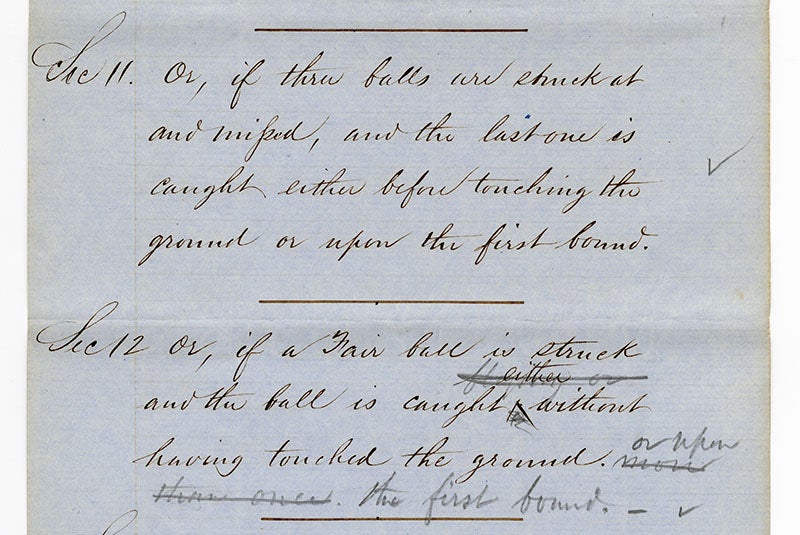 Sec 11. Or, if three balls are struck at
and missed, and the last one is
caught either before touching the
ground or upon the first bound.
Sec 12 Or, if a Fair ball is struck
either or
and the ball is caught without
having touched the ground. or upon
more
than once. the first bound. –